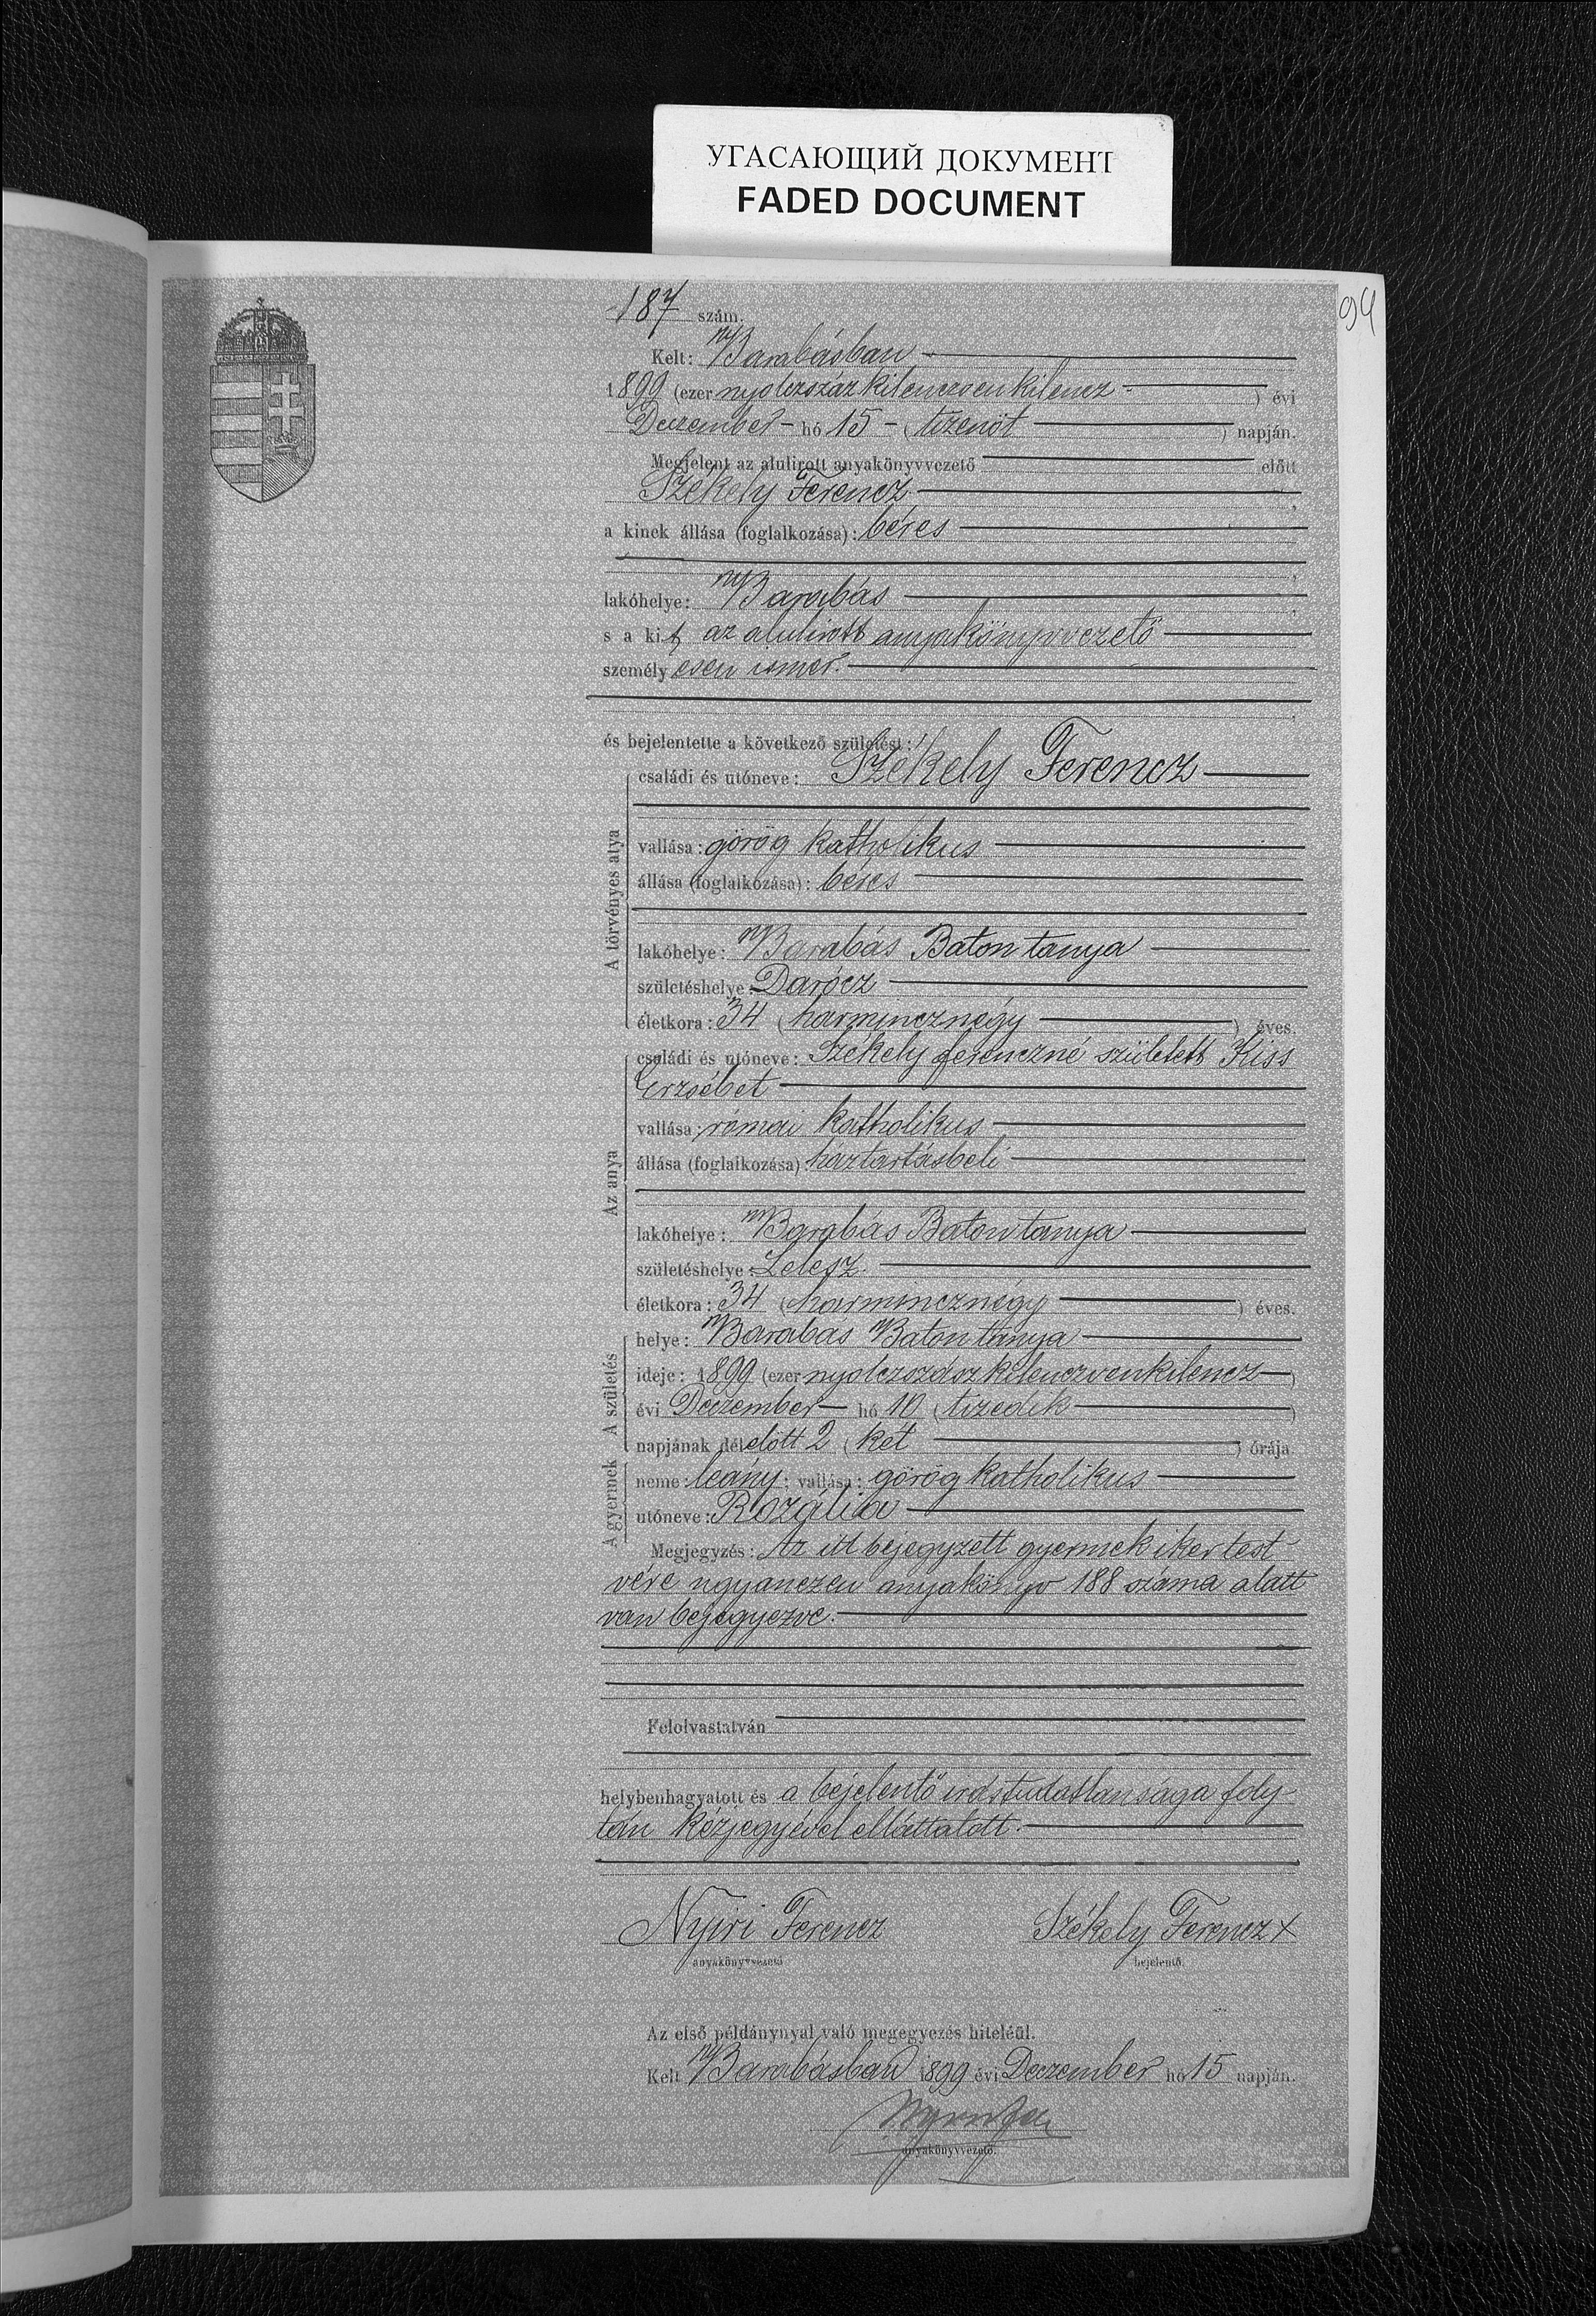 УГАСАЮЩИЙ ДОКУМЕНТ
FADED DOCUMENT
94
187 szám.
Kelt: Barabásban
1899 (ezer nyolczszáz kilenczvenkilencz) évi
Deczember hó 15 (tizenöt) napján.
Megjelent az alulirott anyakönyvvezető előtt
Székely Ferencz
a kinek állása (foglalkozása): béres
lakóhelye: Barabás
s a kit az alulirott anyakönyvvezető
személyesen ismer.
és bejelentette a következő születést:
A törvényes atya
családi és utóneve: Székely Ferencz
vallása: görög katholikus
állása (foglalkozása): béres
lakóhelye: Barabás Baton tanya
születéshelye: Darócz
életkora: 34 (harmincznégy) éves.
Az anya
családi és utóneve: Székely ferenczné született Kiss
Erzsébet
vallása: római katholikus
állása (foglalkozása): háztartásbeli
lakóhelye: Barabás Baton tanya
születéshelye: Lelesz.
életkora: 34 (harmincznégy) éves.
A születés
helye: Barabás Baton tanya
ideje: 1899 (ezer nyolczszász kilenczvenkilencz)
évi Deczember hó 10 (tizedik)
napjának délelőtt 2 (két) órája
A gyermek
neme: leány; vallása: görög katholikus
utóneve: Rozália
Megjegyzés: Az itt bejegyzett gyermek ikertest
vére ugyanezen anyakönyv 188 száma alatt
van bejegyezve.
Felolvastatván
helybenhagyatott és a bejelentő irástudatlansága foly-
tán kézjegyével elláttatott.
Nyiri Ferencz Székely Ferencz X
anyakönyvvezető bejelentő.
Az első példánynyal való megegyezés hiteléül.
Kelt Barabásban 1899 évi Deczember hó 15 napján.
anyakönyvvezető.